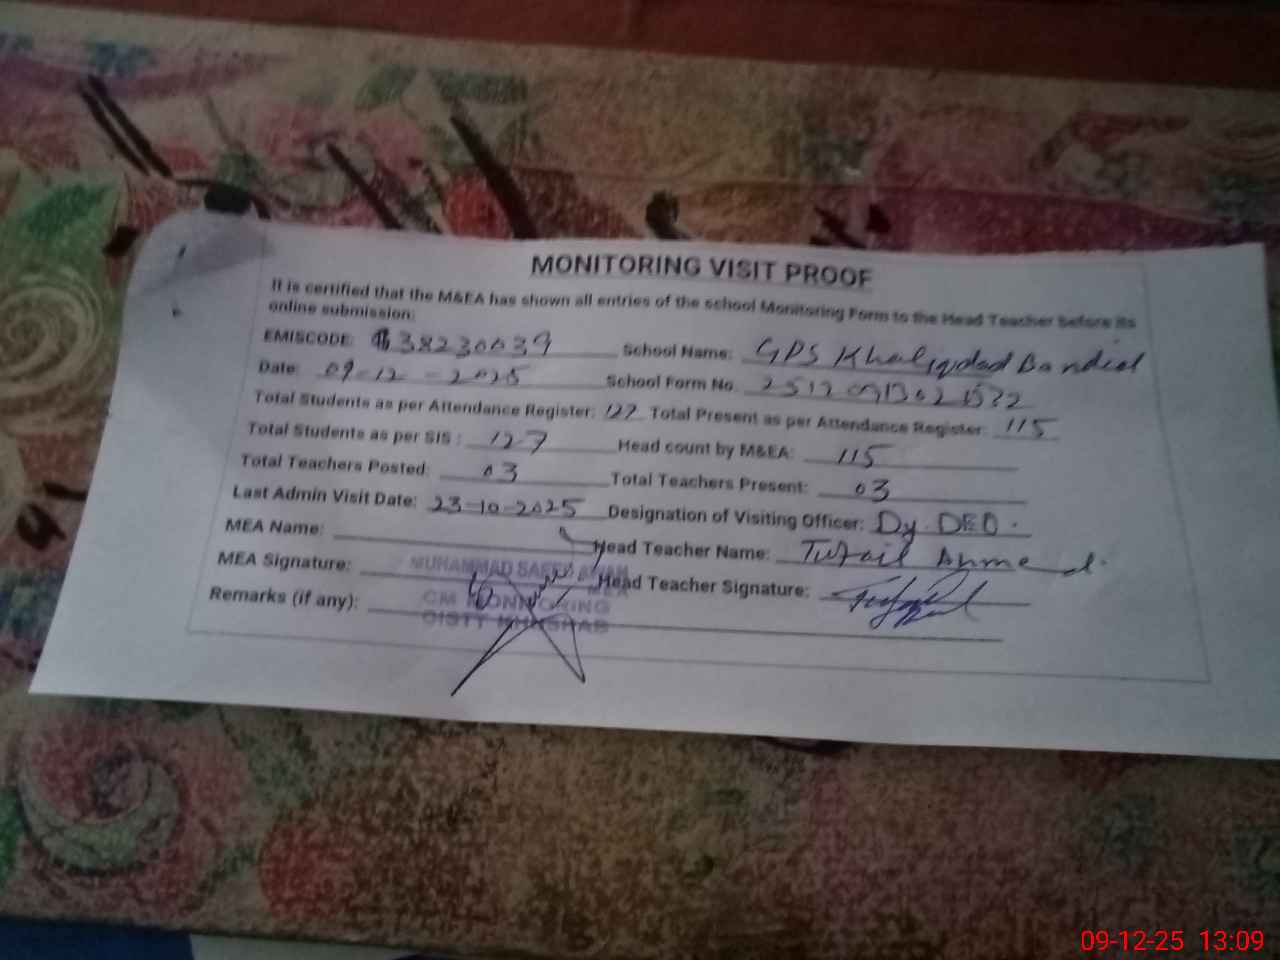 MONITORING VISIT PROOF
It is certified that the M&EA has shown all entries of the school Monitoring Form to the Head Teacher before its
online submission:
EMISCODE: 38230039 School Name: GPS Khaliqdad Bandial
Date: 09-12-2025 School Form No.
Total Students as per Attendance Register: 127 Total Present as per Attendance Register: 115
Total Students as per SIS : 127 Head count by M&EA: 115
Total Teachers Posted: 03 Total Teachers Present: 03
Last Admin Visit Date: 23-10-2025 Designation of Visiting Officer: Dy. DEO.
MEA Name: Head Teacher Name: Tufail Ahmed.
MUHAMMAD SAEED AWAN
MEA Signature: Head Teacher Signature:
MEA
CM MONITORING
Remarks (if any):
DISTT KHUSHAB
09-12-25 13:09